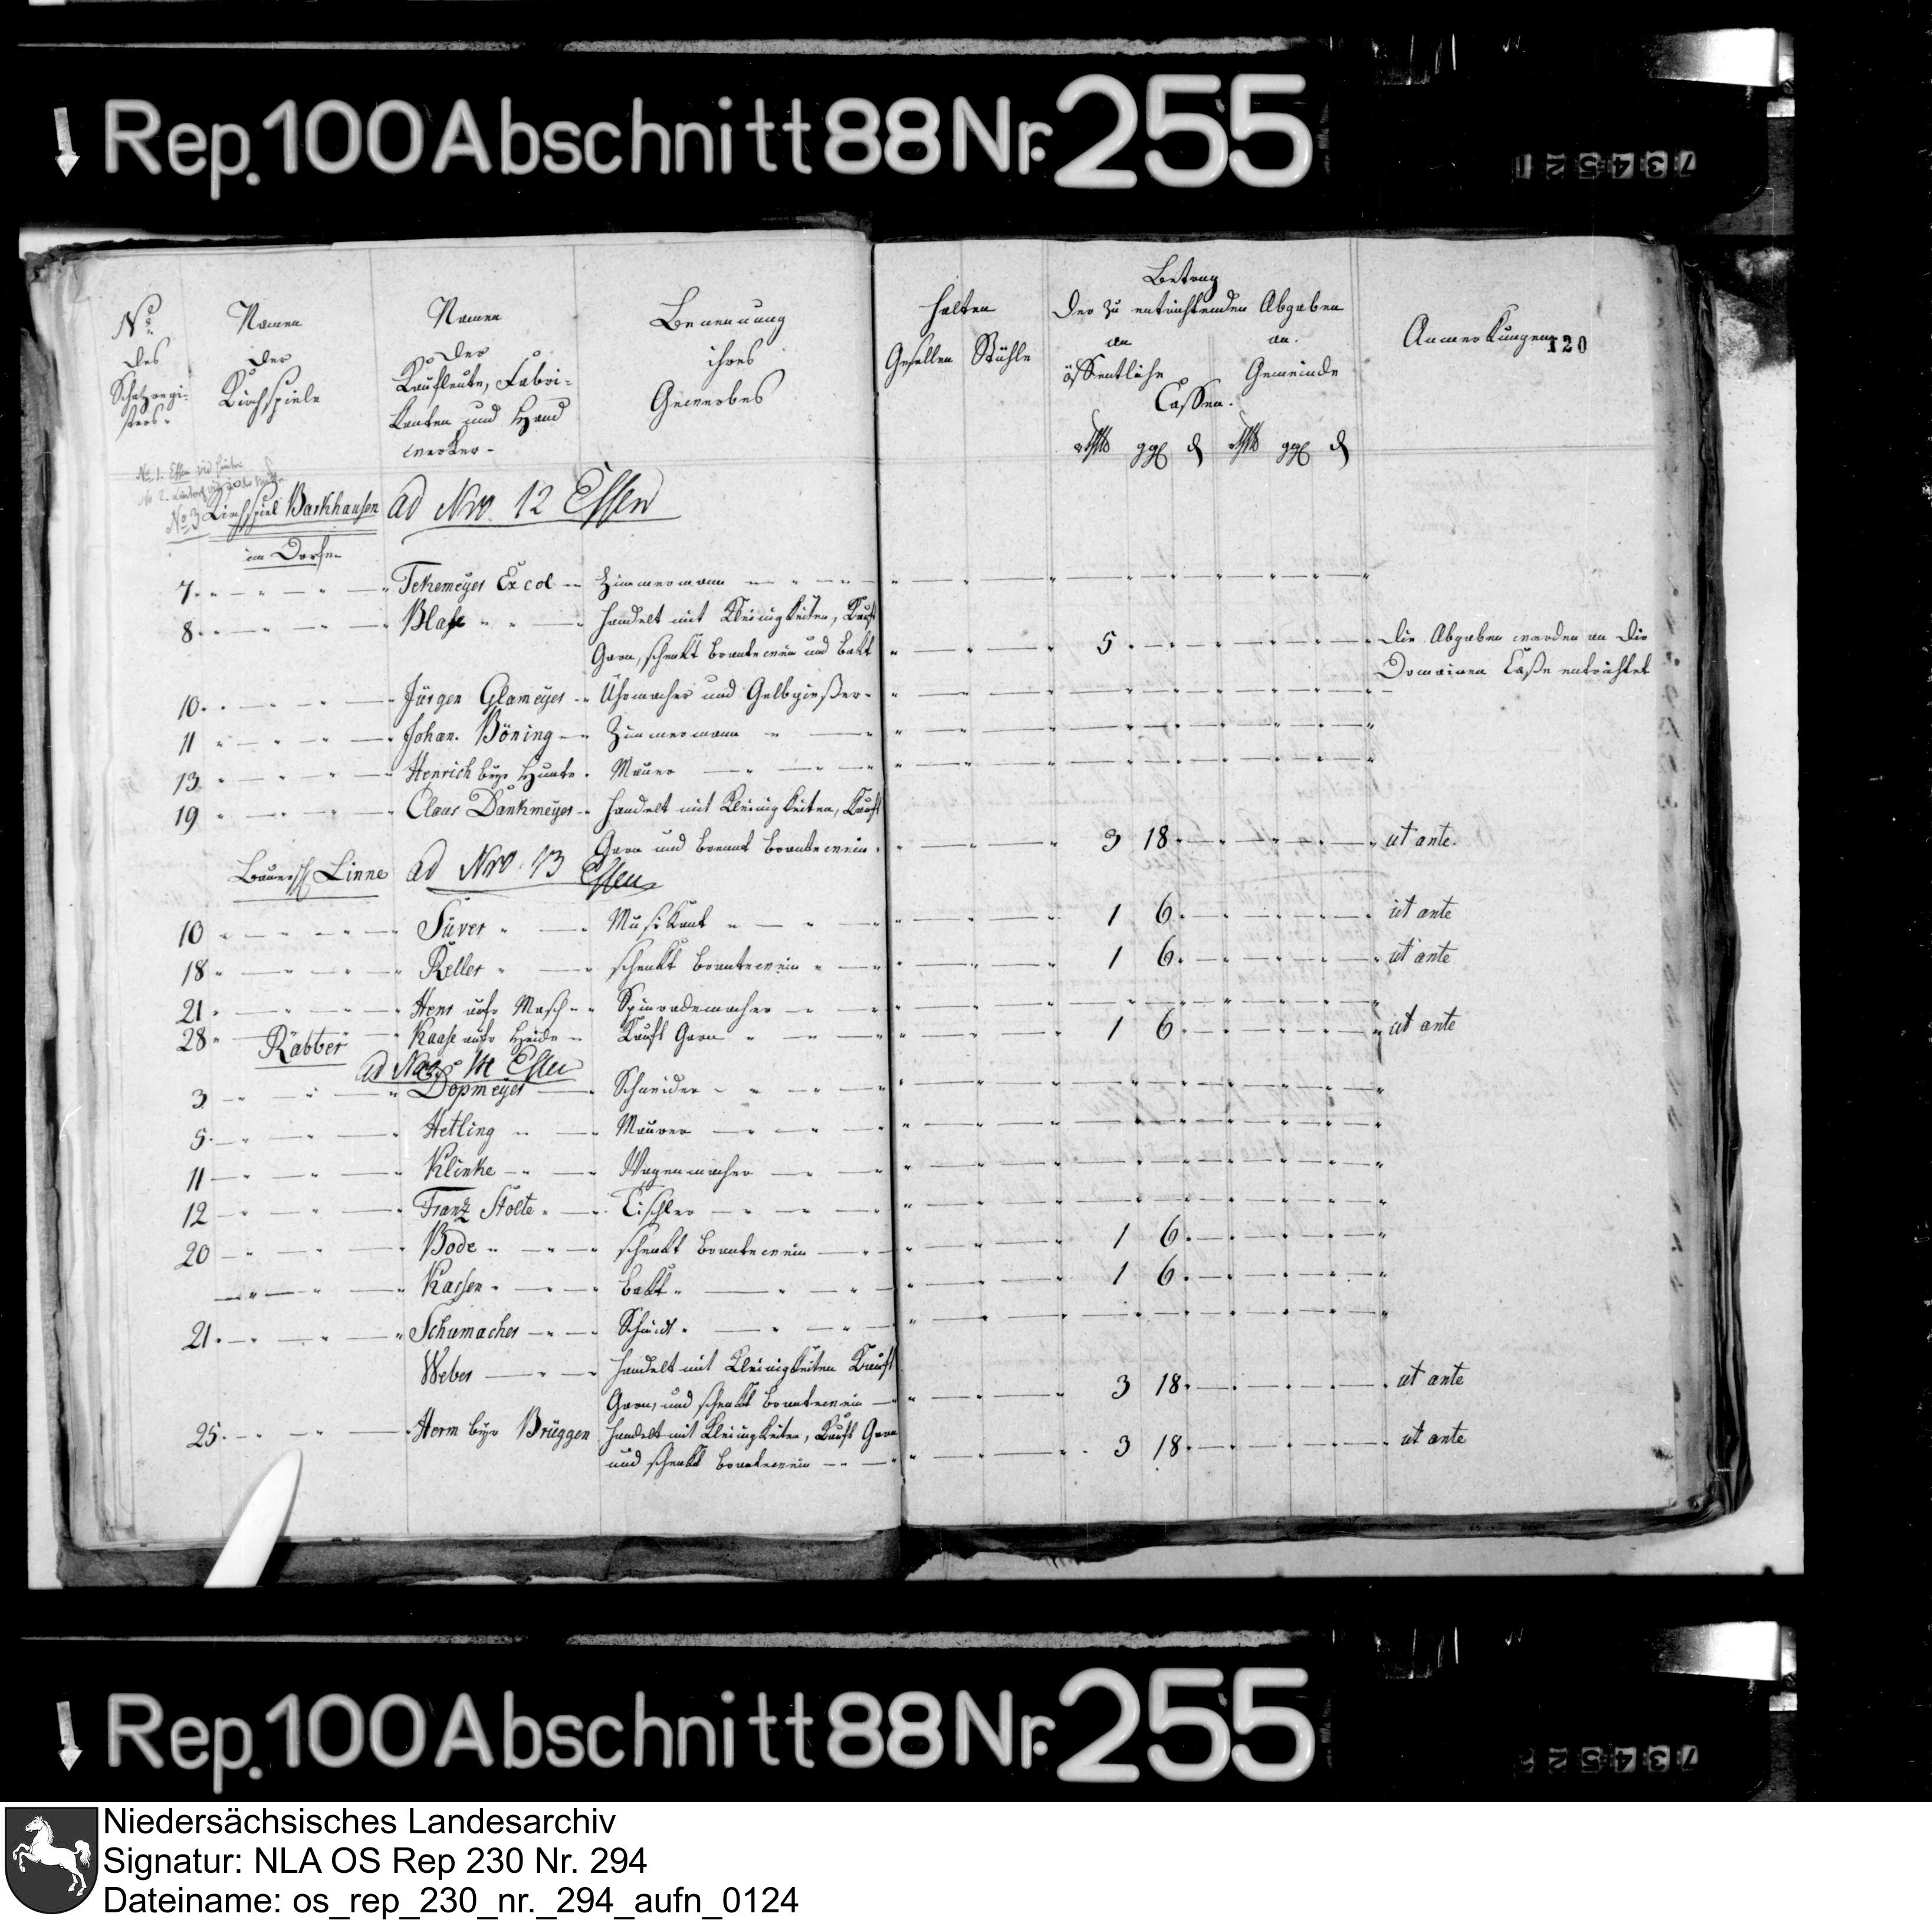 Rep. 100 Abschnitt 88 Nr. 255
734521
No des Schatzregisters.
Namen der Kirchspiele
Namen der Kaufleute, Fabrikanten und Handwerker.
Benennung ihres Gewerbes
halten
Gesellen Stühle
Betrag
der zu entrichtenden Abgaben
an öffentliche
an Gemeinde
Cassen.
rthlr ggl d rthlr ggl d
Anmerkungen
120
No 1. Essen vid hinten
No 2.
No 3 Kirchspiel Barkhausen ad Nro. 12 Essen
im Dorfe
7 Tekemeyer Ex col Zimmermann
8 Blase handelt mit Kleinigkeiten, kauft
Garn, schenkt Brantewein und bakt 5 Die Abgaben werden an die
Domainen Casse entrichtet
10. Jürgen Glameyer Uhrmacher und Gelbgießer
11 Johan. Böning Zimmermann
13 Henrich beyr Hunte Maurer
19 Claus Dankmeyer handelt mit Kleinigkeiten, kauft
Garn und brennt Brantewein 3 18 ut ante.
Bauersch Linne ad Nro. 13 Essen
10 Süver Musikant 1 6 ut ante
18 Keller schenkt Brantewein 1 6 ut ante
21 Hens aufr Masch Spinrademacher
28 Kaase aufr Heide kauft Garn 1 6 ut ante
Rabber
ad Nro. 14 Essen
3 Dopmeyer Schneider
5 Hetling Maurer
11 Klinke Wagenmacher
12 Franz Stolte Tischler
20 Bode schenkt Brantewein 1 6
Kassen bakt 1 6
21 Schumacher Schmidt
Weber handelt mit Kleinigkeiten kauft
Garn, und schenkt Brantewein 3 18 ut ante
25 Herm beyr Brüggen handelt mit Kleinigkeiten, kauft Garn
und schenkt Brantewein 3 18 ut ante
Rep. 100 Abschnitt 88 Nr. 255
734522
Niedersächsisches Landesarchiv
Signatur: NLA OS Rep 230 Nr. 294
Dateiname: os_rep_230_nr._294_aufn_0124